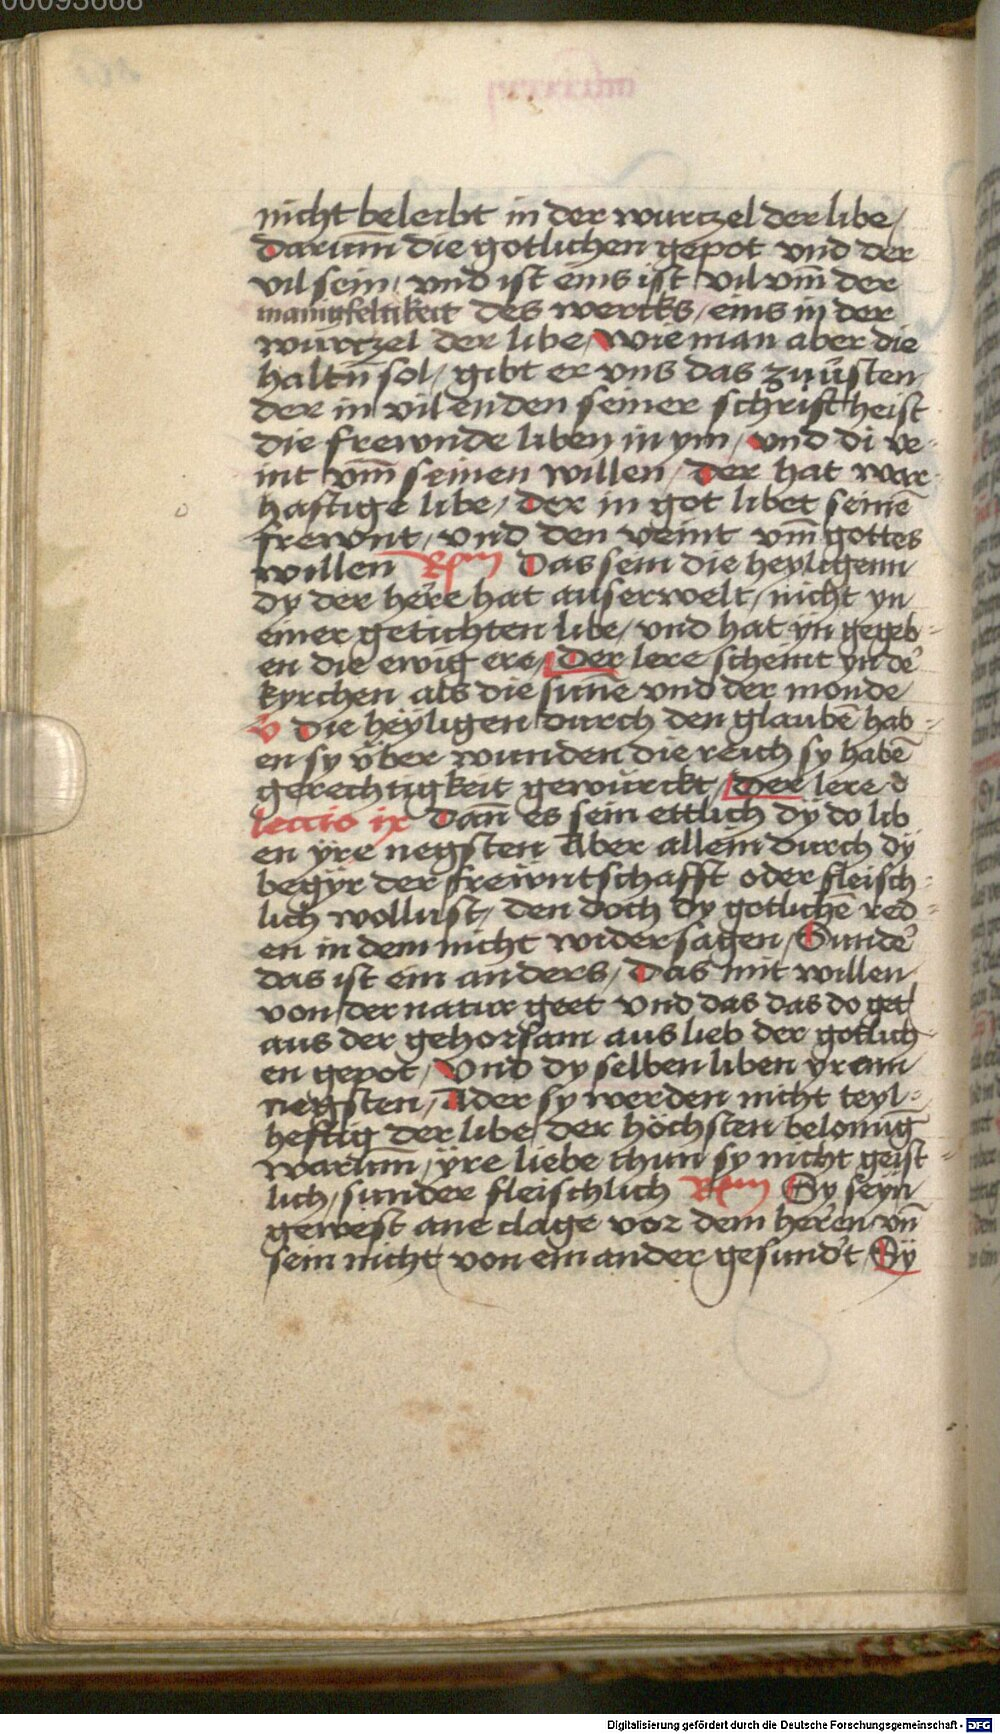 00093668
nicht beleibt in der wurtzel der libe/
Darum̄ die gotlichen gepot vnd der
vil sein/ vnd ist eins ist vil vm̄ der
manigfeltikeit des wercks/ eins in der
wurtzel der libe/ Wie man aber die
haltn̄ sol/ gibt er vns das zuůsten
der in vil enden seiner schrift heist
die frewnde liben in ym/ vnd di ve-
int vm̄ seinen willen/ Der hat war-
haftige libe/ Der in got libet seinē
frewnt/ vnd den veint vm̄ gottes
willen Rsm Das sein die heyligenn
dy der here hat auserwelt/ nicht yn
einer getichten libe/ vnd hat ÿn gegeb-
en die ewig ere/ Der lere scheint yn de᾽
kyrchen als die sunne vnd der monde
v Die heÿligen durch den glaubē hab-
en sy vber wunden die reich sy habē
gerechtigkeit gewurckt/ Der lere d
leccio ix Dan̄ es sein ettlich dÿ do lib
en yre negsten Aber allein durch dÿ
begÿr der frewntschafft oder fleisch-
lich wollust/ den doch dy gotlichē red-
en in dem nicht widersagen/ Sunde᾽
das ist ein anders/ Das mit willen
von der natur geet vnd das das do get
aus der gehorsam aus lieb der gotlich
en gepot/ Vnd dy selben liben yrenn
negsten/ Ader sy werden nicht teyl-
heftig der libe der höchsten belonūg
warum̄/ ÿre liebe thun sy nicht geist-
lich/ sunder fleischlich Rsm Sy seyn
gewest ane clage vor dem heren vn̄
sein nicht von ein ander gesundt Sÿ
Digitalisierung gefördert durch die Deutsche Forschungsgemeinschaft - DFG